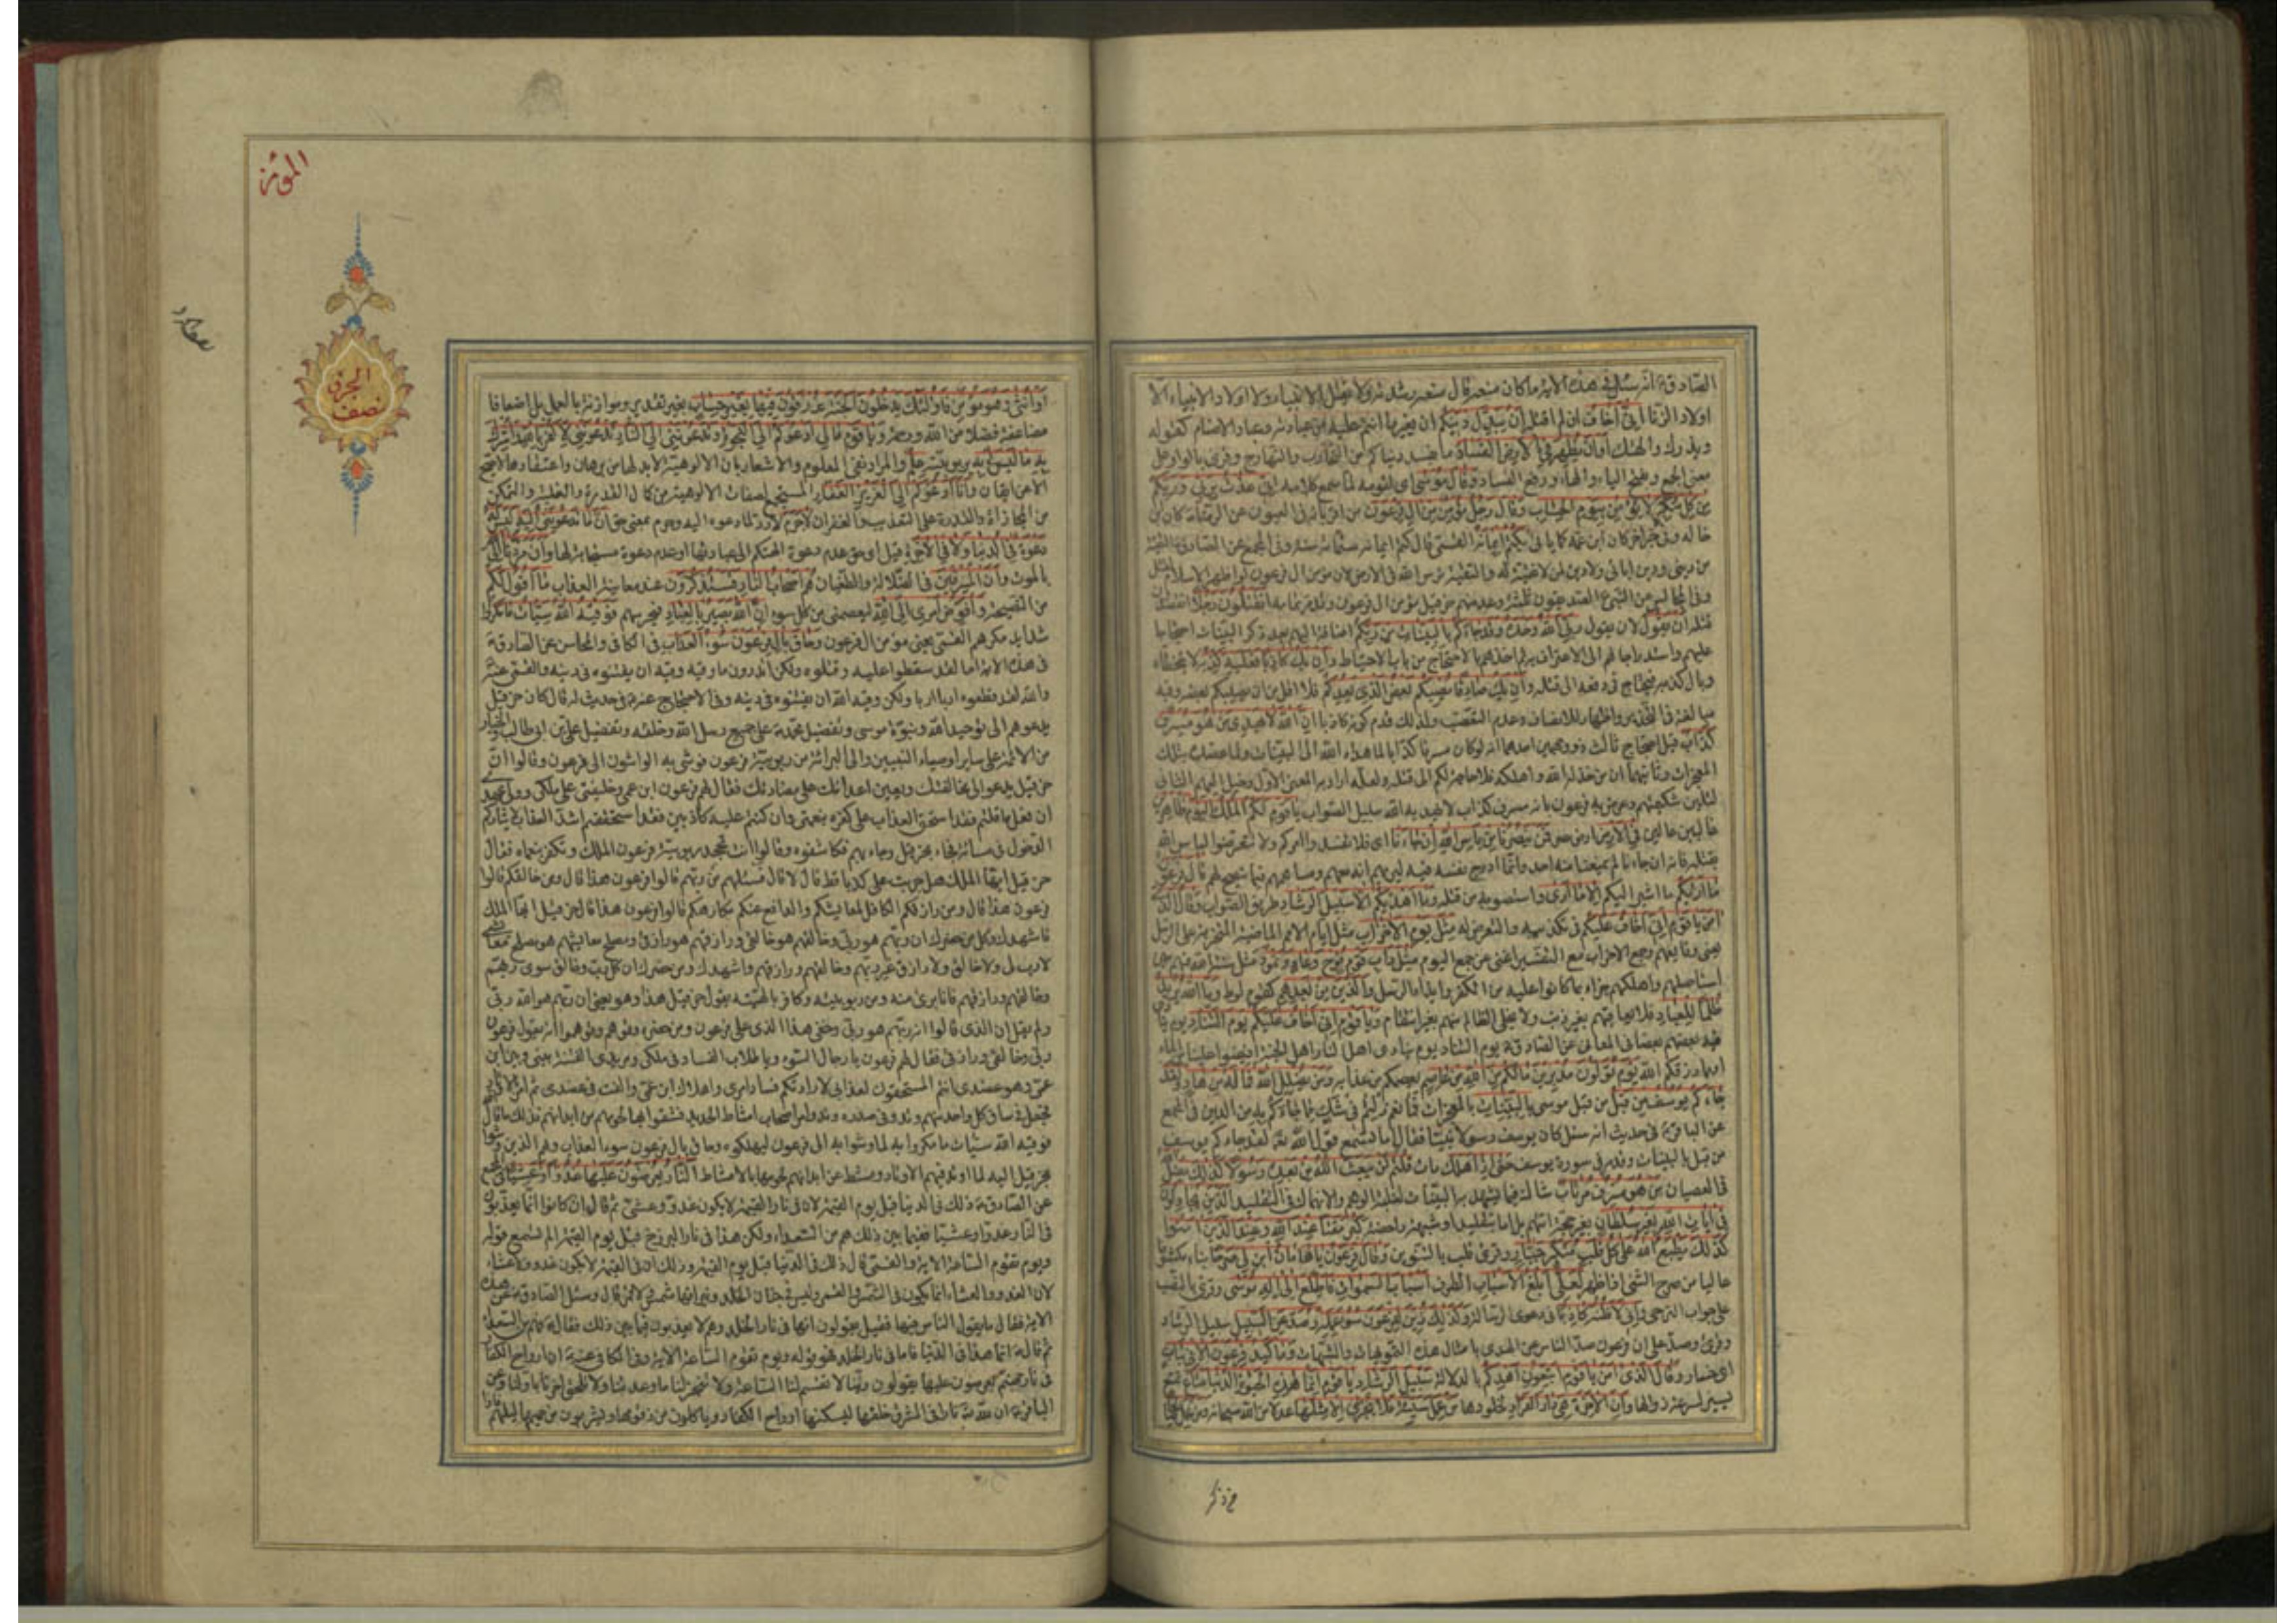 الصادق ع انه سئل في هذه الآية ما كان يمنعه قال منعته رشدته ولا يقتل الانبياء ولا اولاد الانبياء الا
اولاد الزنا اني اخاف ان لم اقتله أن يبدل دينكم ان يغير ما انتم عليه من عبادته وعبادة الاصنام كقوله
ويذرك وآلهتك أو أن يظهر في الارض الفساد ما يفسد دنياكم من التحارب والتهارج وقرئ بالواو على
معنى الجمع وبفتح الياء والهاء ورفع الفساد وقال موسى اي لقومه لما سمع كلامه اني عذت بربي وربكم
من كل متكبر لا يؤمن بيوم الحساب وقال رجل مؤمن من آل فرعون من اقربائه في العيون عن الرضا ع كان ابن
خاله وفي خبر اخر كان ابن عمه كما ياتي يكتم ايمانه القمي قال كتم ايمانه ستمائة سنة وفي المجمع عن الصادق ع التقية
من ديني ودين ابائي ولا دين لمن لا تقية له والتقية ترس الله في الارض لان مؤمن آل فرعون لو اظهر الاسلام لقتل
وفي المجالس عن النبي ص الصديقون ثلثة وعد منهم حزقيل مؤمن آل فرعون أتقتلون رجلا
أن يقول لان يقول ربي الله وحده وقد جاءكم بالبينات من ربكم اضافه اليهم بعد ذكر البينات احتجاجا
عليهم واستدراجا لهم الى الاعتراف به ثم اخذهم بالاحتجاج من باب الاحتياط وإن يك كاذبا فعليه كذبه لا يتخطاه
وبال كذبه فيحتاج في دفعه الى قتله وإن يك صادقا يصبكم بعض الذي يعدكم فلا اقل من ان يصيبكم بعضه وفيه
مبالغة في التحذير واظهار للانصاف وعدم التعصب ولذلك قدم كونه كاذبا إن الله لا يهدي من هو مسرف
كذاب قيل احتجاج ثالث ذو وجهين احدهما انه لو كان مسرفا كذابا لما هداه الله الى البينات ولما عضده بتلك
المعجزات وثانيهما ان من خذله الله واهلكه فلا حاجة لكم الى قتله ولعله اراد به المعنى الاول وخيل اليهم الثاني
لتلين شكيمتهم وعرض به فرعون بانه مسرف كذاب لا يهديه الله سبيل الصواب يا قوم لكم الملك اليوم ظاهرين
غالبين عالين في الارض ارض مصر فمن ينصرنا من بأس الله إن جاءنا اي فلا تفسدوا امركم ولا تتعرضوا لباس الله
بقتله فانه ان جاءنا لم يمنعنا منه احد وانما ادرج نفسه فيه ليريهم انه معهم ومساهمهم فيما ينصح لهم قال فرعون
ما أريكم ما اشير اليكم إلا ما أرى واستصوبه من قتله وما أهديكم إلا سبيل الرشاد طريق الصواب وقال الذي
آمن يا قوم إني أخاف عليكم في تكذيبه والتعرض له مثل يوم الاحزاب مثل ايام الامم الماضية المتحزبة على الرسل
يعني وقايعهم وجمع الاحزاب مع التفسير اغنى عن جمع اليوم مثل دأب قوم نوح وعاد وثمود مثل سنة الله فيهم حين
استأصلهم واهلكهم جزاء بما كانوا عليه من الكفر وايذاء الرسل والذين من بعدهم كقوم لوط وما الله يريد
ظلما للعباد فلا يعاقبهم بغير ذنب ولا يخلي الظالم منهم بغير انتقام ويا قوم إني أخاف عليكم يوم التناد يوم ينادي
فيه بعضهم بعضا في المعاني عن الصادق ع يوم التناد يوم ينادي اهل النار اهل الجنة أفيضوا علينا من الماء
او مما رزقكم الله يوم تولون مدبرين ما لكم من الله من عاصم يعصمكم من عذابه ومن يضلل الله فما له من هاد ولقد
جاءكم يوسف من قبل من قبل موسى بالبينات بالمعجزات فما زلتم في شك مما جاءكم به من الدين في المجمع
عن الباقر ع في حديث انه سئل كان يوسف رسولا نبيا فقال نعم اما تسمع قول الله لقد جاءكم يوسف
من قبل بالبينات وقد مر في سورة يوسف حتى إذا هلك مات قلتم لن يبعث الله من بعده رسولا كذلك يضل
في العصيان من هو مسرف مرتاب شاك فيما يشهد به البينات لغلبة الوهم والانهماك في التقليد الذين يجادلون
في آيات الله بغير سلطان بغير حجة اتاهم بل اما بتقليد او شبهة داحضة كبر مقتا عند الله وعند الذين آمنوا
كذلك يطبع الله على كل قلب متكبر جبار وقرئ قلب بالتنوين وقال فرعون يا هامان ابن لي صرحا بناء مكشوفا
عاليا من صرح الشئ اذا ظهر لعلي أبلغ الأسباب الطرق أسباب السموات فأطلع إلى إله موسى وقرئ بالنصب
على جواب الترجي وإني لأظنه كاذبا في دعوى الرسالة وكذلك زين لفرعون سوء عمله وصد عن السبيل سبيل الرشاد
وقرئ وصد على ان فرعون صد الناس عن الهدى بامثال هذه التمويهات والشبهات وما كيد فرعون إلا في تباب
اي خسار وقال الذي آمن يا قوم اتبعون أهدكم بالدلالة سبيل الرشاد يا قوم إنما هذه الحيوة الدنيا متاع تمتع
يسير لسرعة زوالها وإن الآخرة هي دار القرار لخلودها من عمل سيئة فلا يجزى إلا مثلها عدلا من الله سبحانه ومن عمل صالحا
من ذكر
المؤمن
الجزء
نصف
أو أنثى وهو مؤمن فأولئك يدخلون الجنة يرزقون فيها بغير حساب بغير تقدير وموازنة بالعمل بل اضعافا
مضاعفة فضلا من الله ورحمة ويا قوم ما لي أدعوكم إلى النجوة وتدعونني إلى النار تدعونني لأكفر بالله وأشرك
به ما ليس لي به بربوبيته علم والمراد نفي المعلوم والاشعار بان الالوهية لا بد لها من برهان واعتقادها لا يصح
الا عن ايقان وأنا أدعوكم إلى العزيز الغفار المستجمع لصفات الالوهية من كمال القدرة والغلبة والتمكن
من المجازاة والقدرة على التعذيب والغفران لا جرم لا رد لما دعوه اليه وجرم بمعنى حق أن ما تدعونني إليه ليس له
دعوة في الدنيا ولا في الآخرة قيل اي حق عدم دعوة الهتكم الى عبادتها او عدم دعوة مستجابة لها وأن مردنا إلى الله
بالموت وأن المسرفين في الضلالة والطغيان هم أصحاب النار فستذكرون عند معاينة العذاب ما أقول لكم
من النصيحة وأفوض أمري إلى الله ليعصمني من كل سوء إن الله بصير بالعباد فيحرسهم فوقيه الله سيئات ما مكروا
شدايد مكرهم القمي يعني مؤمن آل فرعون وحاق بآل فرعون سوء العذاب في الكافي والمحاسن عن الصادق ع
في هذه الاية اما لقد سقطوا عليه وقتلوه ولكن أتدرون ما وقيه وقيه ان يفتنوه في دينه والقمي عنه ع
والله لقد قطعوه اربا اربا ولكن وقيه الله ان يفتنوه في دينه وفي الاحتجاج عنه ع في حديث له قال كان حزقيل
يدعوهم الى توحيد الله ونبوة موسى وتفضيل محمد ص على جميع رسل الله وخلقه وتفضيل علي بن ابي طالب والخيار
من الائمة على ساير اوصياء النبيين والى البرائة من ربوبية فرعون فوشى به الواشون الى فرعون وقالوا ان
حزقيل يدعو الى مخالفتك ويعين اعدائك على مضادتك فقال لهم فرعون ابن عمي وخليفتي على ملكي وولي عهدي
ان فعل ما قلتم فقد استحق العذاب على كفره بنعمتي وان كنتم عليه كاذبين فقد استحققتم اشد العقاب لايثاركم
الدخول في مسائته فجاء بحزقيل وجاء بهم فكاشفوه وقالوا انت تجحد ربوبية فرعون الملك وتكفر بنعمائه فقال
حزقيل ايها الملك هل جربت علي كذبا قط قال لا قال فسئلهم من ربهم قالوا فرعون هذا قال ومن خالقكم قالوا
فرعون هذا قال ومن رازقكم الكافل لمعايشكم والدافع عنكم مكارهكم قالوا فرعون هذا قال حزقيل ايها الملك
فاشهدك وكل من حضرك ان ربهم هو ربي وخالقهم هو خالقي ورازقهم هو رازقي ومصلح معايشهم هو مصلح معايشي
لا رب لي ولا خالق ولا رازق غير ربهم وخالقهم ورازقهم واشهدك ومن حضرك ان كل رب وخالق سوى ربهم
وخالقهم ورازقهم فانا بريء منه ومن ربوبيته وكافر بالهيته يقول حزقيل هذا وهو يعني ان ربهم هو الله ربي
ولم يقل ان الذي قالوا انه ربهم هو ربي وخفي هذا المعنى على فرعون ومن حضره وتوهم وتوهموا انه يقول فرعون
ربي وخالقي ورازقي فقال لهم فرعون يا رجال السوء ويا طلاب الفساد في ملكي ومريدي الفتنة بيني وبين ابن
عمي وهو عضدي انتم المستحقون لعذابي لارادتكم فساد امري واهلاك ابن عمي والفت في عضدي ثم امر بالاوتاد
فجعل في ساق كل واحد منهم وتد وفي صدره وتد وامر اصحاب امشاط الحديد فشقوا بها لحومهم من ابدانهم فذلك ما قال
فوقيه الله سيئات ما مكروا به لما وشوا به الى فرعون ليهلكوه وحاق بآل فرعون سوء العذاب وهم الذين وشوا
بحزقيل اليه لما اوتد فيهم الاوتاد ومشط عن ابدانهم لحومها بالامشاط النار يعرضون عليها غدوا وعشيا في المجمع
عن الصادق ع ذلك في الدنيا قبل يوم القيمة لان في نار القيمة لا يكون غدو وعشي ثم قال ان كانوا انما يعذبون
في النار غدوا وعشيا ففيما بين ذلك هم من السعداء ولكن هذا في نار البرزخ قبل يوم القيمة الم تسمع قوله
ويوم تقوم الساعة الاية والقمي قال ذلك في الدنيا قبل يوم القيمة وذلك ان في القيمة لا يكون غدوا ولا عشاء
لان الغدو والعشاء انما يكون في الشمس والقمر وليس في جنان الخلد ونيرانها شمس ولا قمر قال وسئل الصادق ع عن هذه
الاية فقال ما يقول الناس فيها فقيل يقولون انها في نار الخلد وهم لا يعذبون فيما بين ذلك فقال ع فهم من السعداء
ثم قال ع انما هذا في الدنيا فاما في نار الخلد فهو قوله ويوم تقوم الساعة الاية وفي الكافي عنه ع ان ارواح الكفار
في نار جهنم يعرضون عليها يقولون ربنا لا تقم لنا الساعة ولا تنجز لنا ما وعدتنا ولا تلحق اخرنا باولنا وعن
الباقر ع ان لله نارا في المشرق خلقها ليسكنها ارواح الكفار وياكلون من زقومها ويشربون من حميمها ليلهم